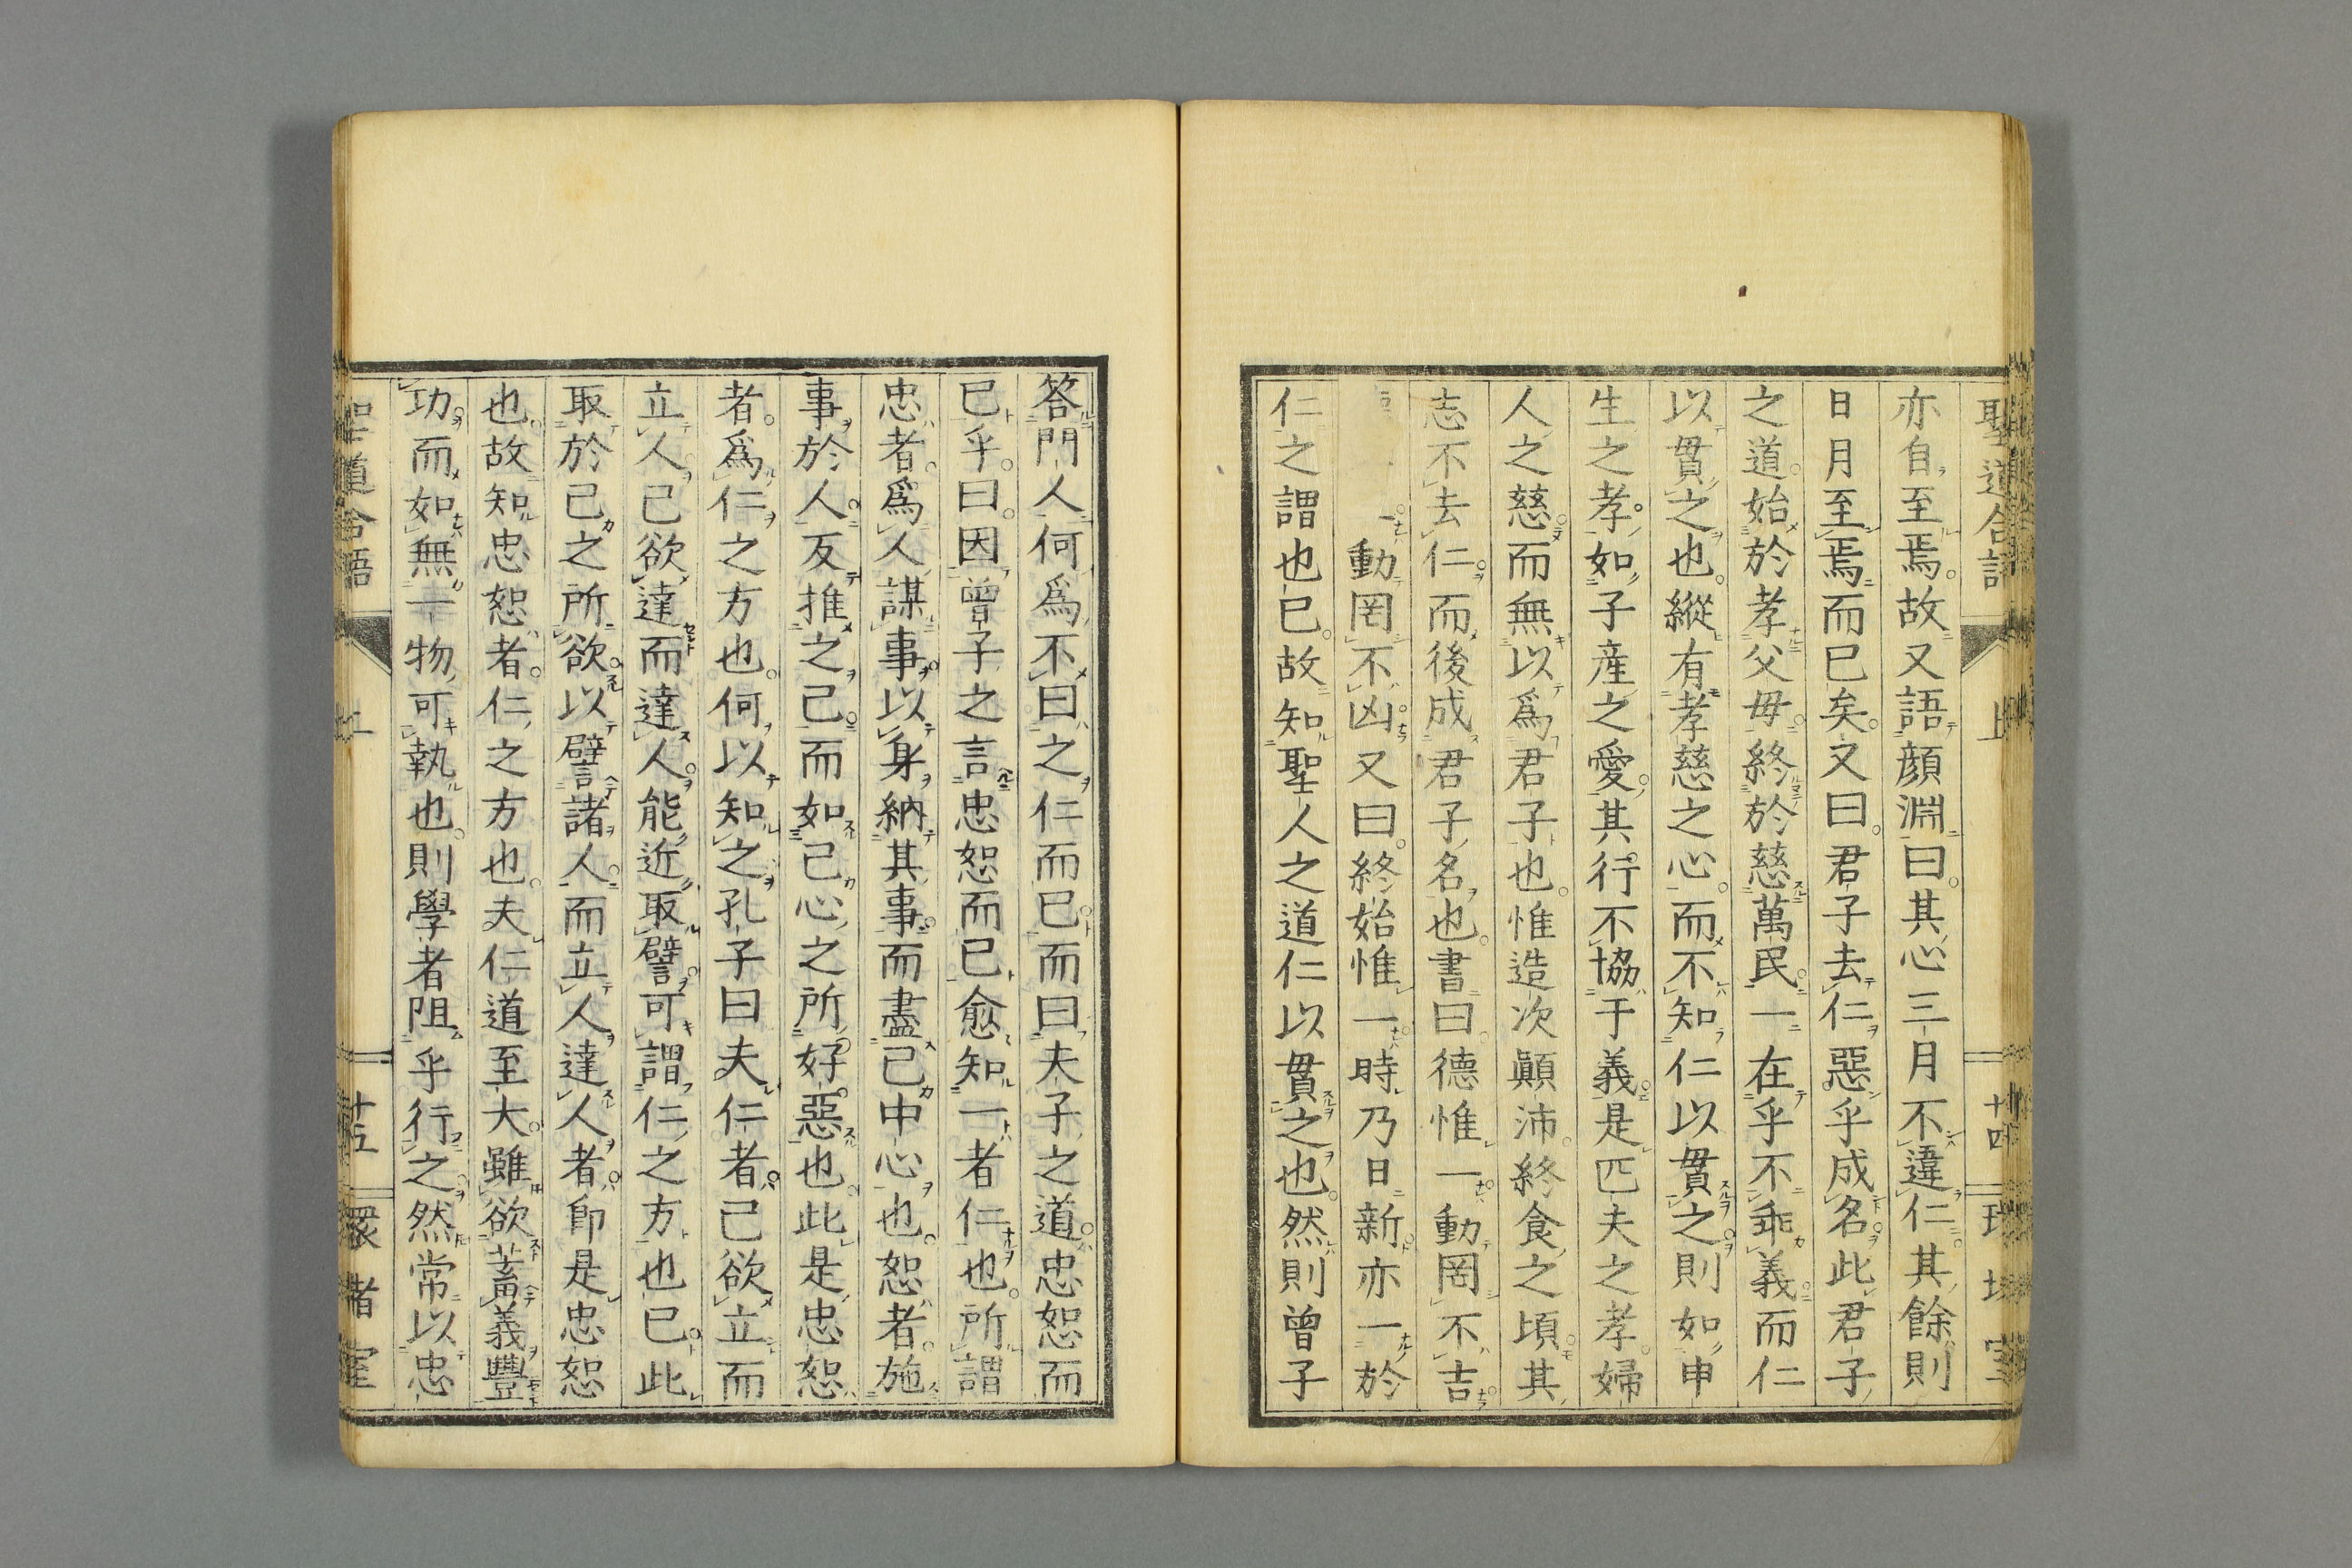 聖道合語 上 十四
亦自至焉故又語顔淵曰其心三月不違仁其餘則
日月至焉而已矣又曰君子去仁惡乎成名此君子
之道始於孝父母終於慈萬民一在乎不乖義而仁
以貫之也縱有孝慈之心而不知仁以貫之則如申
生之孝如子産之愛其行不協于義是匹夫之孝婦
人之慈而無以爲君子也惟造次顚沛終食之頃其
志不去仁而後成君子名也書曰德惟一動罔不吉
動罔不凶又曰終始惟一時乃日新亦一於
仁之謂也已故知聖人之道仁以貫之也然則曾子
答門人何爲不曰之仁而已而曰夫子之道忠恕而
已乎曰因曾子之言忠恕而已愈知一者仁也所謂
忠者爲人謀事以身納其事而盡己中心也恕者施
事於人反推之己而如己心之所好惡也此是忠恕
者爲仁之方也何以知之孔子曰夫仁者己欲立而
立人己欲達而達人能近取譬可謂仁之方也已此
取於己之所欲以譬諸人而立人達人者卽是忠恕
也故知忠恕者仁之方也夫仁道至大雖欲蓄義豐
功而如無一物可執也則學者阻乎行之然常以忠
聖道合語 上 十五